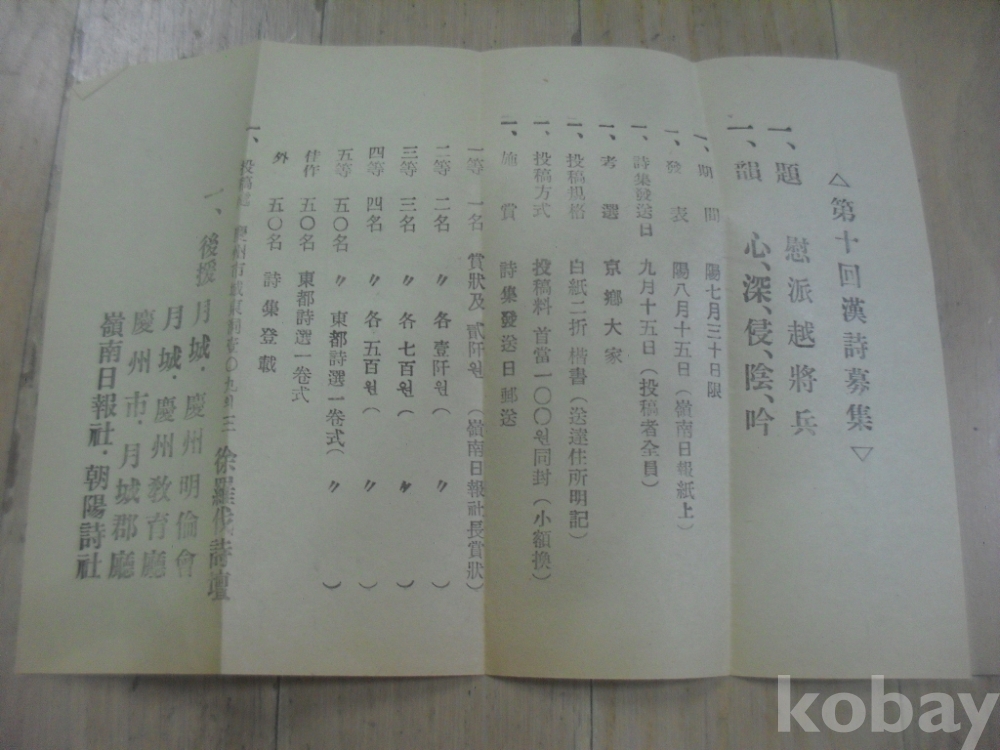 △第十回漢詩募集▽
一、題 慰派越將兵
一、韻 心、深、侵、陰、吟
一、期間 陽七月三十日限
一、發表 陽八月十五日(嶺南日報紙上)
一、詩集發送日 九月十五日(投稿者全員)
一、考選 京鄉大家
一、投稿規格 白紙二折 楷書(送達住所明記)
一、投稿方式 投稿料 首當一〇〇원同封(小額換)
一、施賞 詩集發送日郵送
一等 一名 賞狀及 貳阡원 (嶺南日報社長賞狀)
二等 二名 〃 各壹阡원( 〃 )
三等 三名 〃 各七百원( 〃 )
四等 四名 〃 各五百원( 〃 )
五等 五〇名 〃 東都詩選一卷式( 〃 )
佳作 五〇名 東都詩選一卷式
外 五〇名 詩集登載
一、投稿處 慶州市城東洞 徐羅伐詩壇
一、後援 月城·慶州明倫會
月城·慶州敎育廳
慶州市·月城郡廳
嶺南日報社·朝陽詩社
kobay